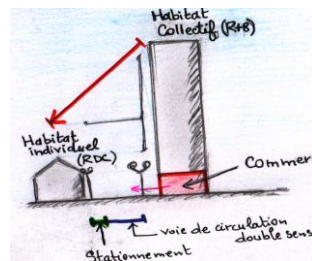 Habitat
Collectif (R+8)
Habitat
individuel
(RDC)
Commer
voie de circulation
double sens
Stationnement